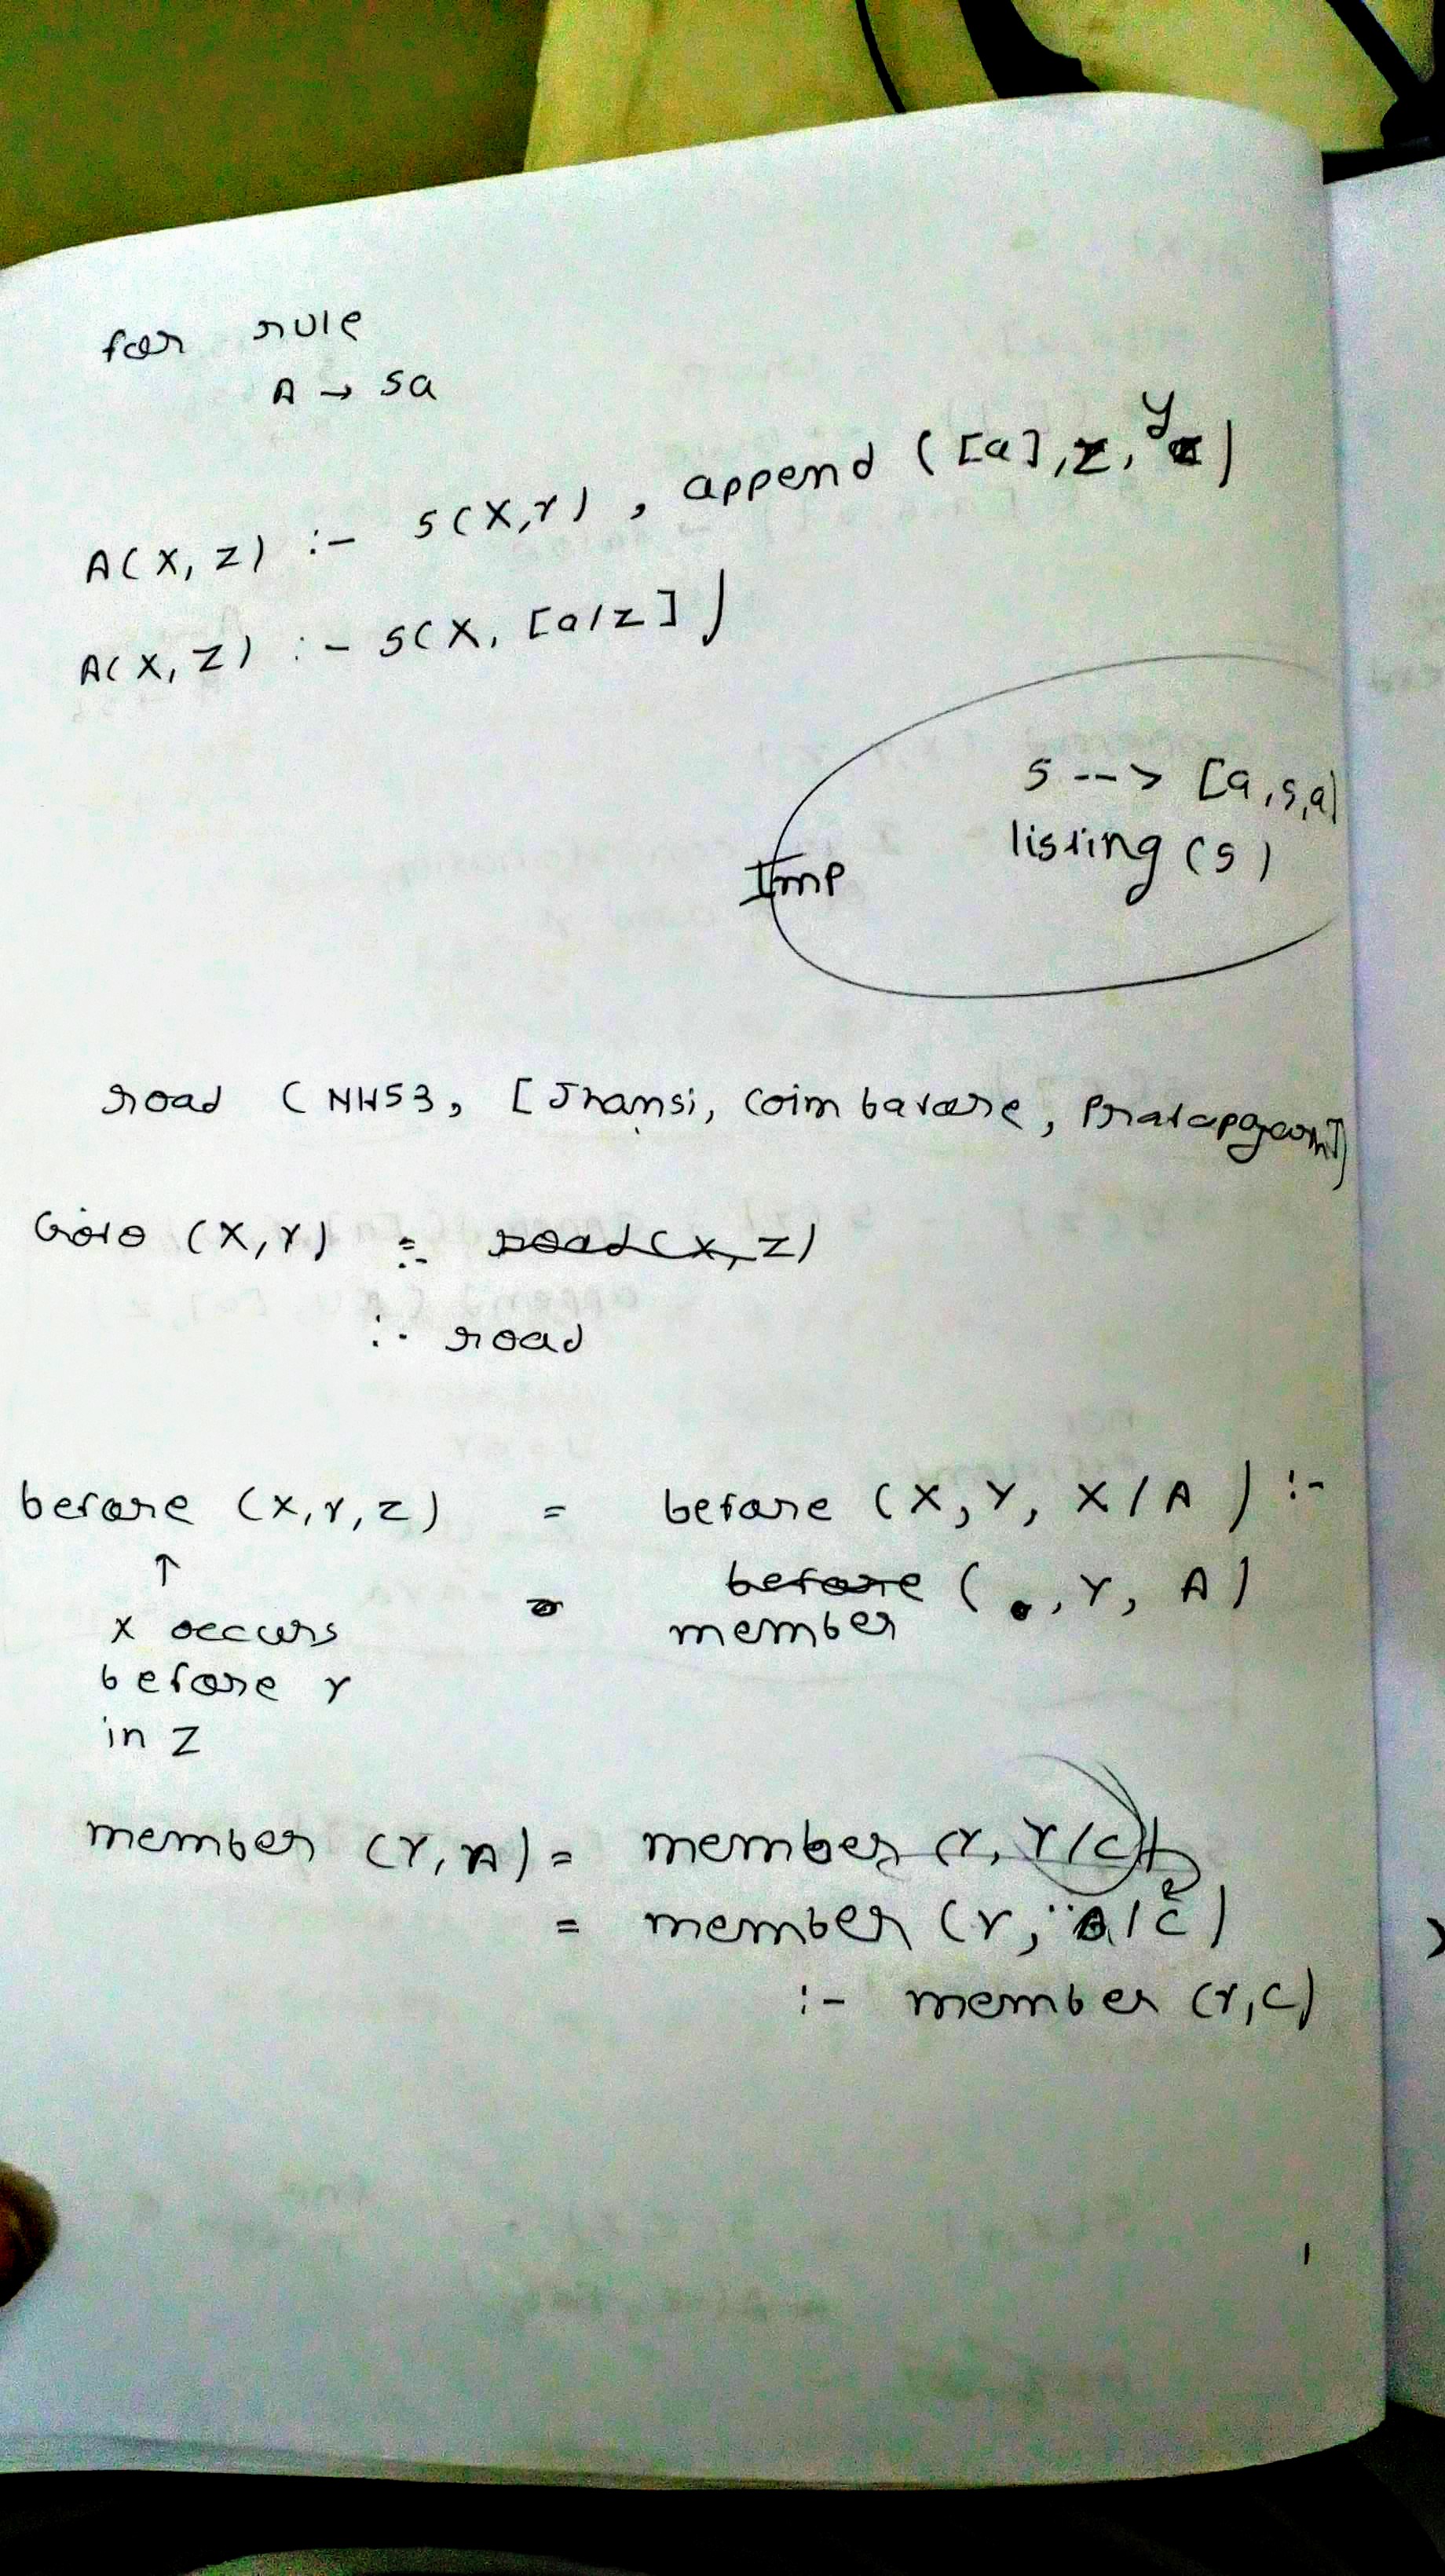 for rule
A → sa
A(X, Z) :- s(X,Y) , append ([a],Z, Y)
A(X, Z) :- s(X, [a/z] )
s --> [a,s,a]
listing (s)
Imp
road (NH53, [Jhansi, Coimbatore,
Goto (X,Y) :- road(X, Z)
:- road
before (X,Y,Z) = before (X, Y, X/A ) :-
↑ before ( , Y, A)
X occurs member
before Y
in Z
member (Y,A) = member (Y, Y/C)
= member (Y, A/C)
:- member (Y,C)